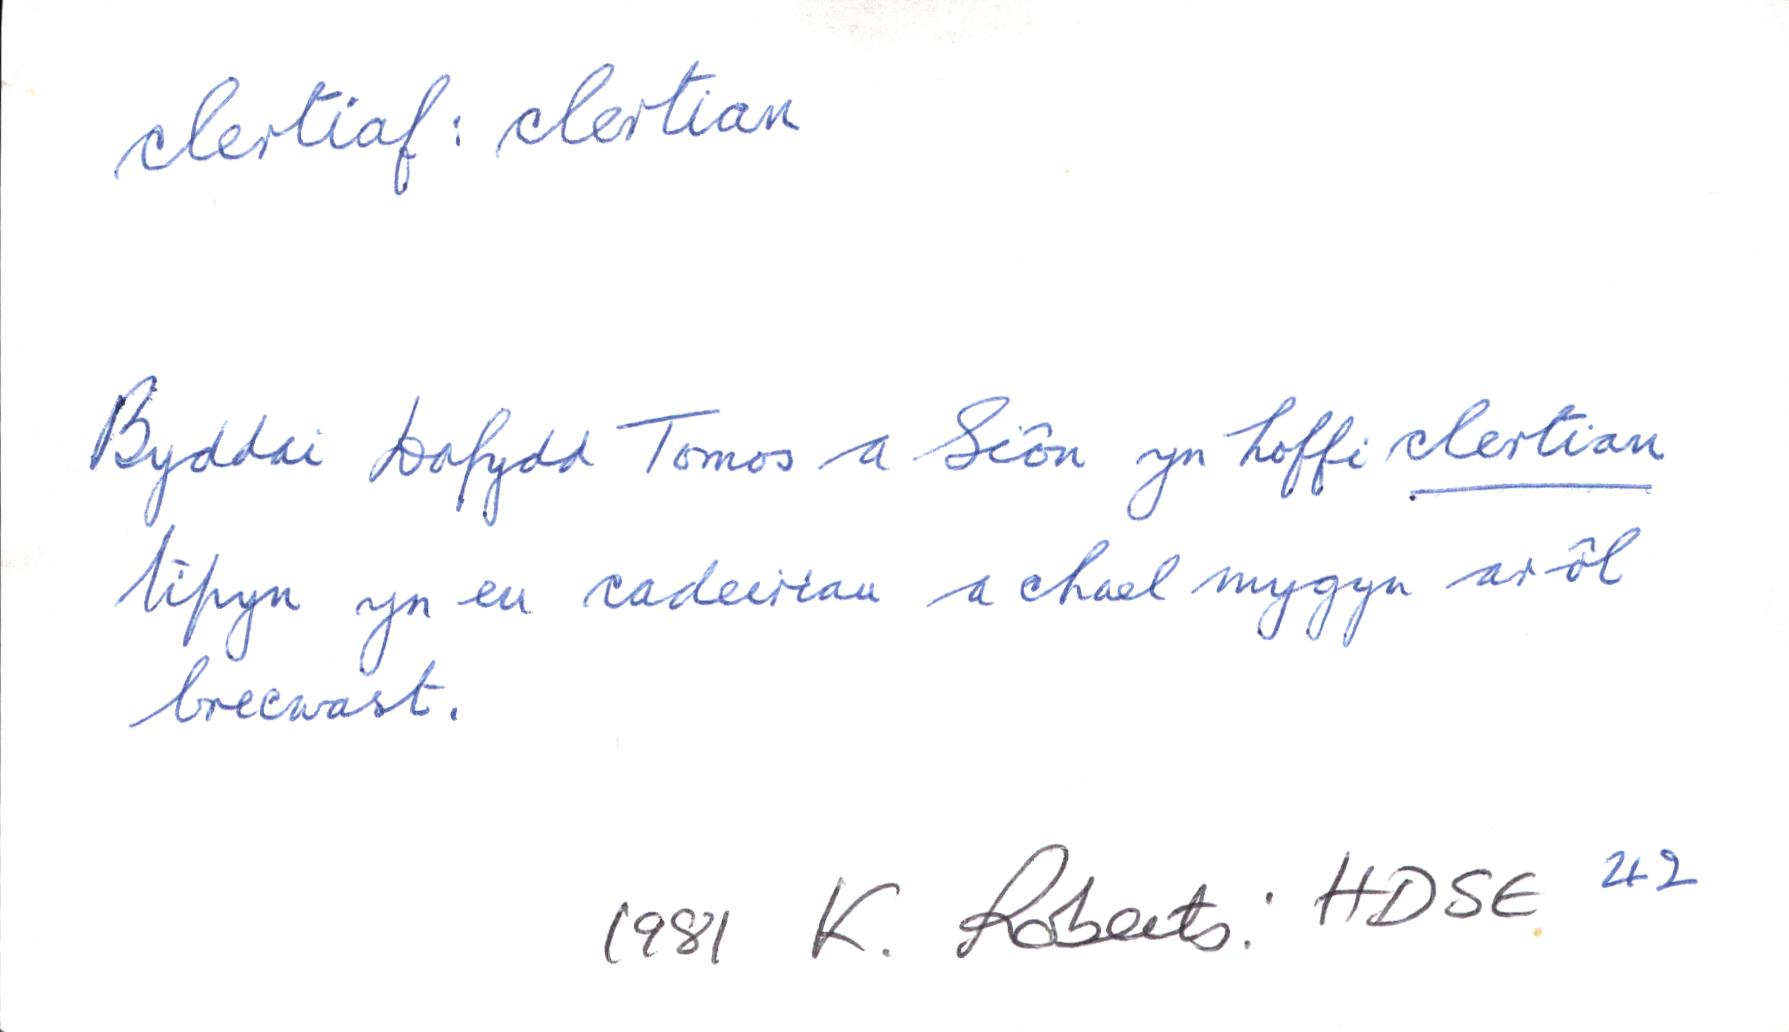 clertiaf: clertian
Byddai Dafydd Tomos a Siôn yn hoffi clertian
tipyn yn eu cadeiriau a chael mygyn ar ôl
brecwast.
1981 K. Roberts: HDSE 42